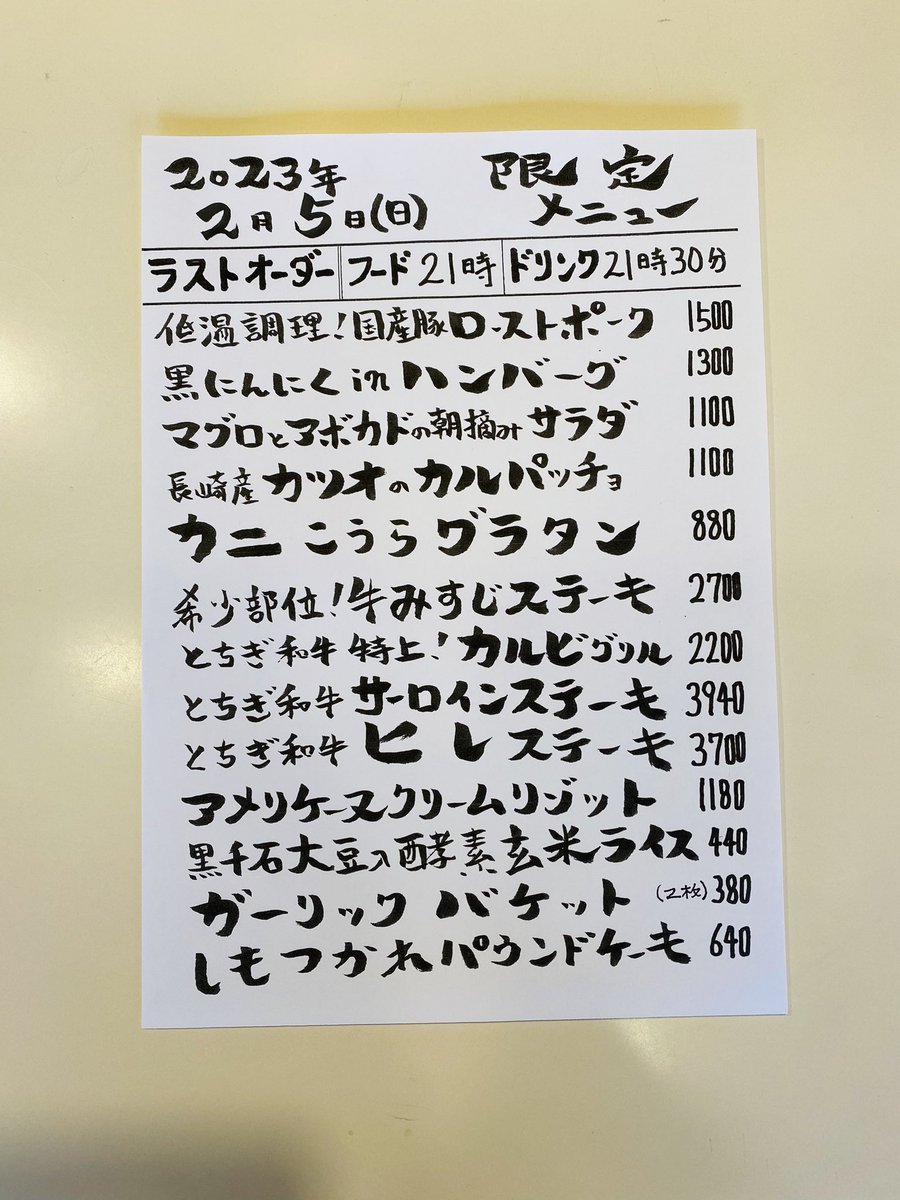 2023年 限定
2月5日(日) メニュー
ラストオーダー フード21時 ドリンク21時30分
低温調理!国産豚ローストポーク 1500
黒にんにくinハンバーグ 1300
マグロとアボカドの朝摘みサラダ 1100
長崎産カツオのカルパッチョ 1100
カニこうらグラタン 880
希少部位!牛みすじステーキ 2700
とちぎ和牛特上!カルビグリル 2200
とちぎ和牛サーロインステーキ 3940
とちぎ和牛ヒレステーキ 3700
アメリケーヌクリームリゾット 1180
黒千石大豆入酵素玄米ライス 440
ガーリックバケット(2枚) 380
しもつかれパウンドケーキ 640